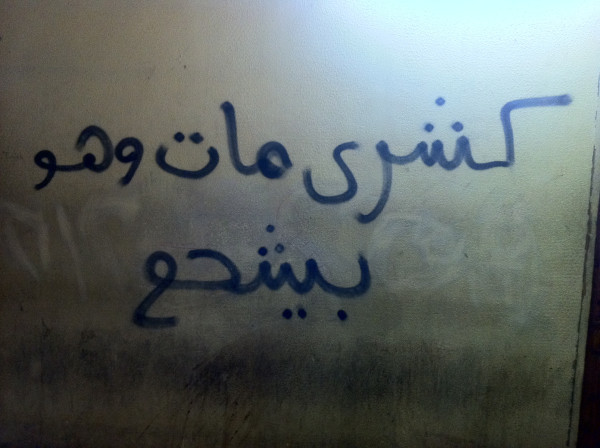 كشرى مات وهو
بيشجع